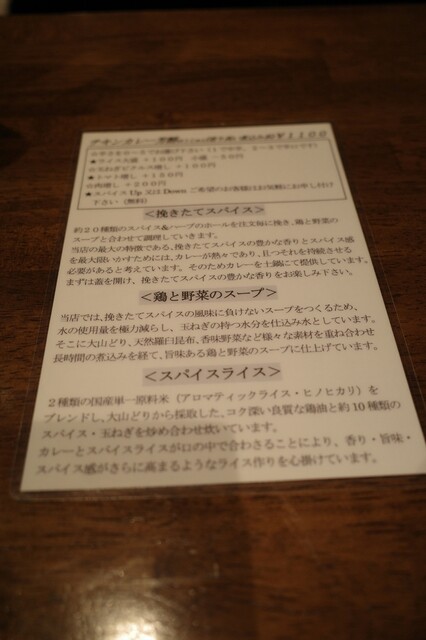 チキンカレー ¥1100
★ライス大盛 +100円 小盛 -50円
☆玉ねぎピクルス増し +100円
★トマト増し +150円
☆肉増し +200円
★スパイスUp又はDown ご希望のお客様はお気軽にお申し付け
下さい (無料)
<挽きたてスパイス>
約20種類のスパイス&ハーブのホールを注文毎に挽き、鶏と野菜の
スープと合わせて調理していきます。
当店の最大の特徴である、挽きたてスパイスの豊かな香りとスパイス感
を最大限いかすためには、カレーが熱々であり、且つそれを持続させる
必要があると考えています。そのためカレーを土鍋にて提供しています。
まずは蓋を開け、挽きたてスパイスの豊かな香りをお楽しみ下さい。
<鶏と野菜のスープ>
当店では、挽きたてスパイスの風味に負けないスープをつくるため、
水の使用量を極力減らし、玉ねぎの持つ水分を仕込み水としています。
そこに大山どり、天然羅臼昆布、香味野菜など様々な素材を重ね合わせ
長時間の煮込みを経て、旨味ある鶏と野菜のスープに仕上げています。
<スパイスライス>
2種類の国産単一原料米(アロマティックライス・ヒノヒカリ)を
ブレンドし、大山どりから採取した、コク深い良質な鶏油と約10種類の
スパイス・玉ねぎを炒め合わせ炊いています。
カレーとスパイスライスが口の中で合わさることにより、香り・旨味・
スパイス感がさらに高まるようなライス作りを心掛けています。